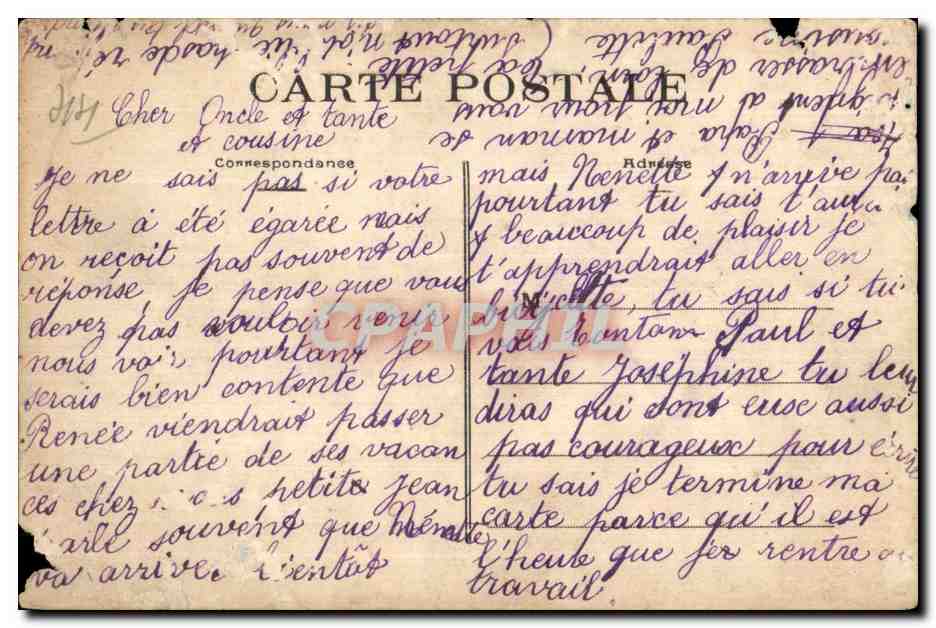 CARTE POSTALE
Correspondance
Adresse
Cher Oncle et tante
et cousine
Je ne sais pas si votre
lettre à été égarée mais
on reçoit pas souvent de
réponse, je pense que vous
devez pas vouloir venir
nous voir pourtant je
serais bien contente que
Renée viendrait passer
une partie de ses vacan
ces chez petite Jean
parle souvent que Nénette
va arriver bientôt
mais Nénette n'arrive pas
pourtant tu sais t'aura
beaucoup de plaisir je
t'apprendrait aller en
bicyclette, tu sais si tu
vois tonton Paul et
tante Joséphine tu leur
diras qui sont euse aussi
pas courageux pour écrire
tu sais je termine ma
carte parce qu'il est
l'heure que je rentre au
travail.
Papa et maman se
joignent a moi pour vous
embrasser de loin
cousine Paulette
(surtout n'oublie pas de ré
CPAPHIL